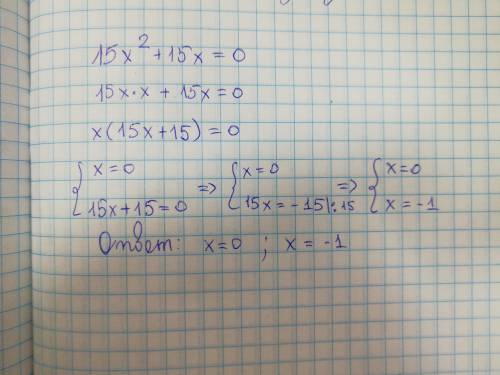 15x² + 15x = 0
15x·x + 15x = 0
x(15x+15) = 0
{ x=0 => { x=0 => { x=0
{ 15x+15=0 { 15x=-15|:15 { x=-1
Ответ: x=0 ; x=-1